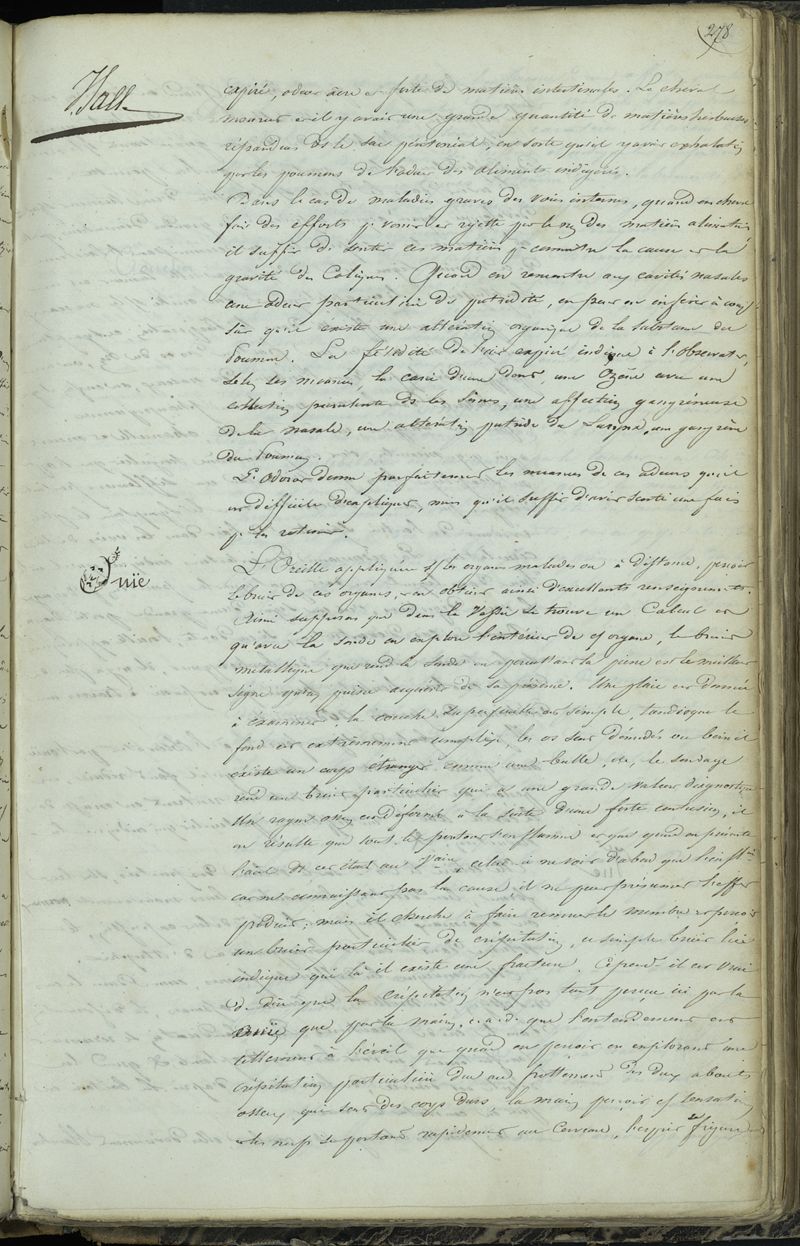 278
expiré, odeur acre et forte de matières intestinales. Le cheval
mourut et il y avait une grande quantité de matières herbacées
répandues ds le sac péritonéal, en sorte qu'il y avait exhalation
par les poumons de l'odeur des aliments
Dans le cas de maladies graves des voies internes, quand un cheval
fait des efforts pr vomir et rejette par le nez des matières alimentaires
il suffit de sentir ces matières pr connaitre la cause et la
gravité des Coliques. Quand on rencontre aux cavités nasales
une odeur particulière de putridité, on peut en inférer à coup
sûr qu'il existe une altération organique de la substance du
Poumon. La fétidité de l'air expiré indique à l'observateur,
selon les nuances, la carie d'une dent, une Ozène avec une
collection purulente ds les Sinus, une affection gangréneuse
de la nasale, une altération putride du Larynx, une gangrène
du Poumon.
L'Odorat donne parfaitement les nuances de ces odeurs qu'il
est difficile d'expliquer, mais qu'il suffit d'avoir senti une fois
pr les retenir.
Ouïe
L'Oreille appliquée sur les organes malades ou à distance, perçoit
le bruit de ces organes, et on obtient ainsi d'excellents renseignements.
Ainsi supposons que dans la Vessie se trouve un Calcul et
qu'avec la sonde on explore l'intérieur de cet organe, le bruit
métallique que rend la sonde en percutant la pierre est le meilleur
signe qu'on puisse acquérir de sa présence. Une plaie est donnée
à examiner, la couche superficielle est simple, tandis que le
fond est extrêmement compliqué, les os sont dénudés ou bien il
existe un corps étranger comme une balle, etc, le sondage
rend un bruit particulier qui a une grande valeur diagnostique
Un rayon osseux est déformé à la suite d'une forte contusion, il
en résulte que tout le pourtour s'enflamme et que quand on présente
l'animal ds cet état au Vre, celui-ci ne voit d'abord que
car ne connaissant pas la cause, il ne peut présumer l'effet
produit; mais il cherche à faire remuer le membre et perçoit
un bruit particulier de crépitation, ce simple bruit lui
indique que là il existe une fracture. Cependt il est vrai
de dire que la crépitation n'est pas tant perçue ici par la
ouïe que par la main, c.a.d. que l'entendement est
tellement à l'éveil que quand on perçoit en explorant une
crépitation particulière due au frottement des deux abouts
osseux qui sont des corps durs, la main perçoit cette sensation
et les nerfs se portant rapidement au Cerveau, l'esprit se figure